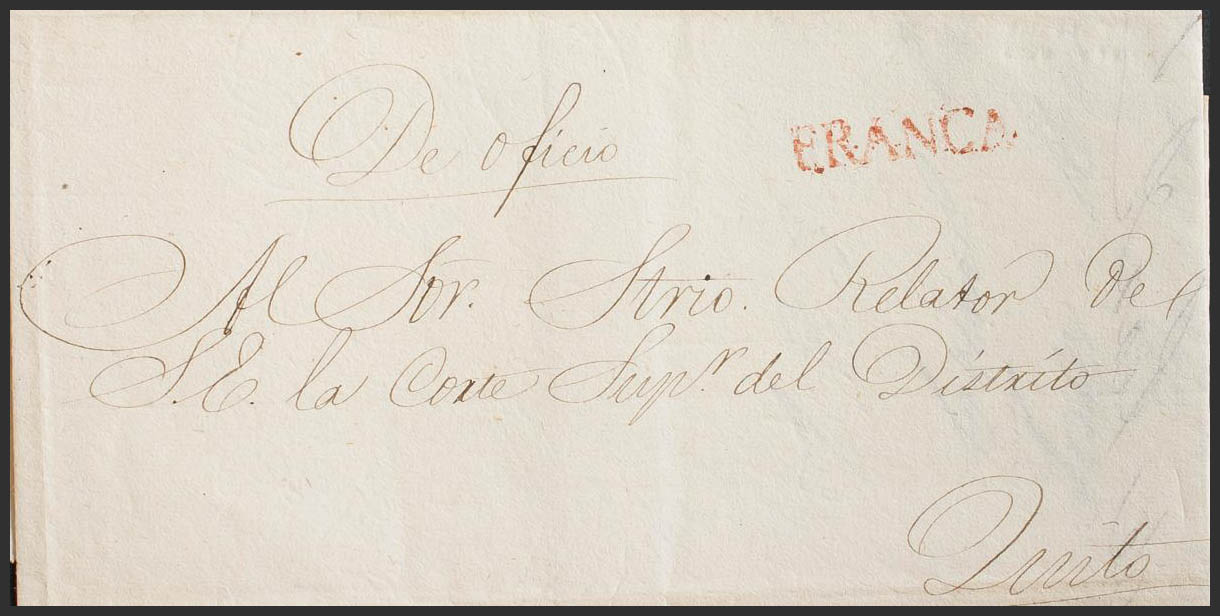 De oficio
FRANCA
Al Sor. Strio. Relator De
S.E. la Corte Supr. del Distrito
Quito